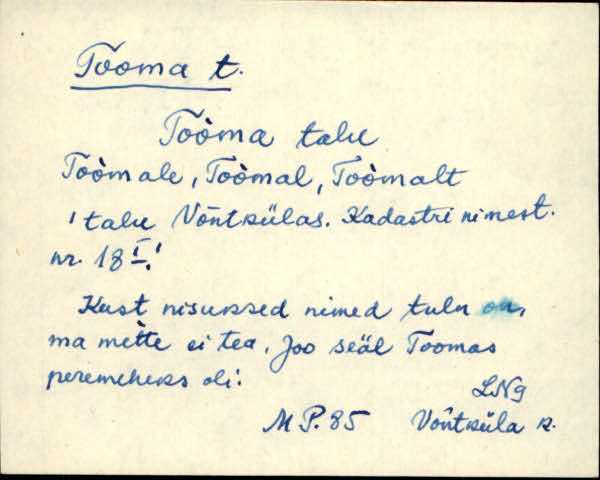 Tooma t.
Toòma talu
Toòmale, Toòmal, Toòmalt
'talu Võntkülas. Kadastri nimest.
nr. 18 I.'
Kust nisukssed nimed tulu on,
ma mètte ei tea. Joo seäl Toomas
peremeheks oli.
LNg
M P. 85 Võntküla k.